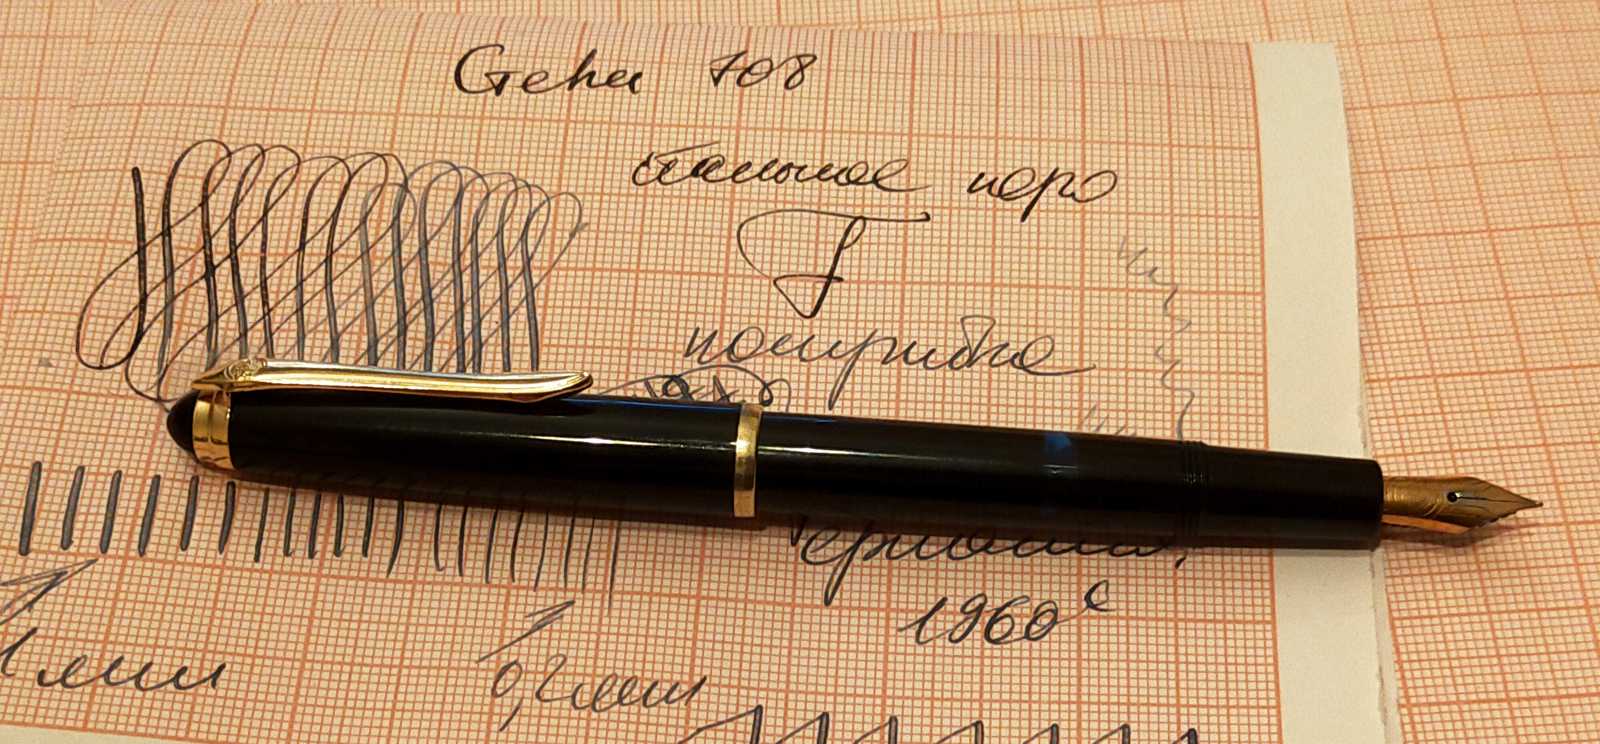 Geha 708
стальное перо
F
полугибкое
Германия,
1960с
1мм
0,2мм